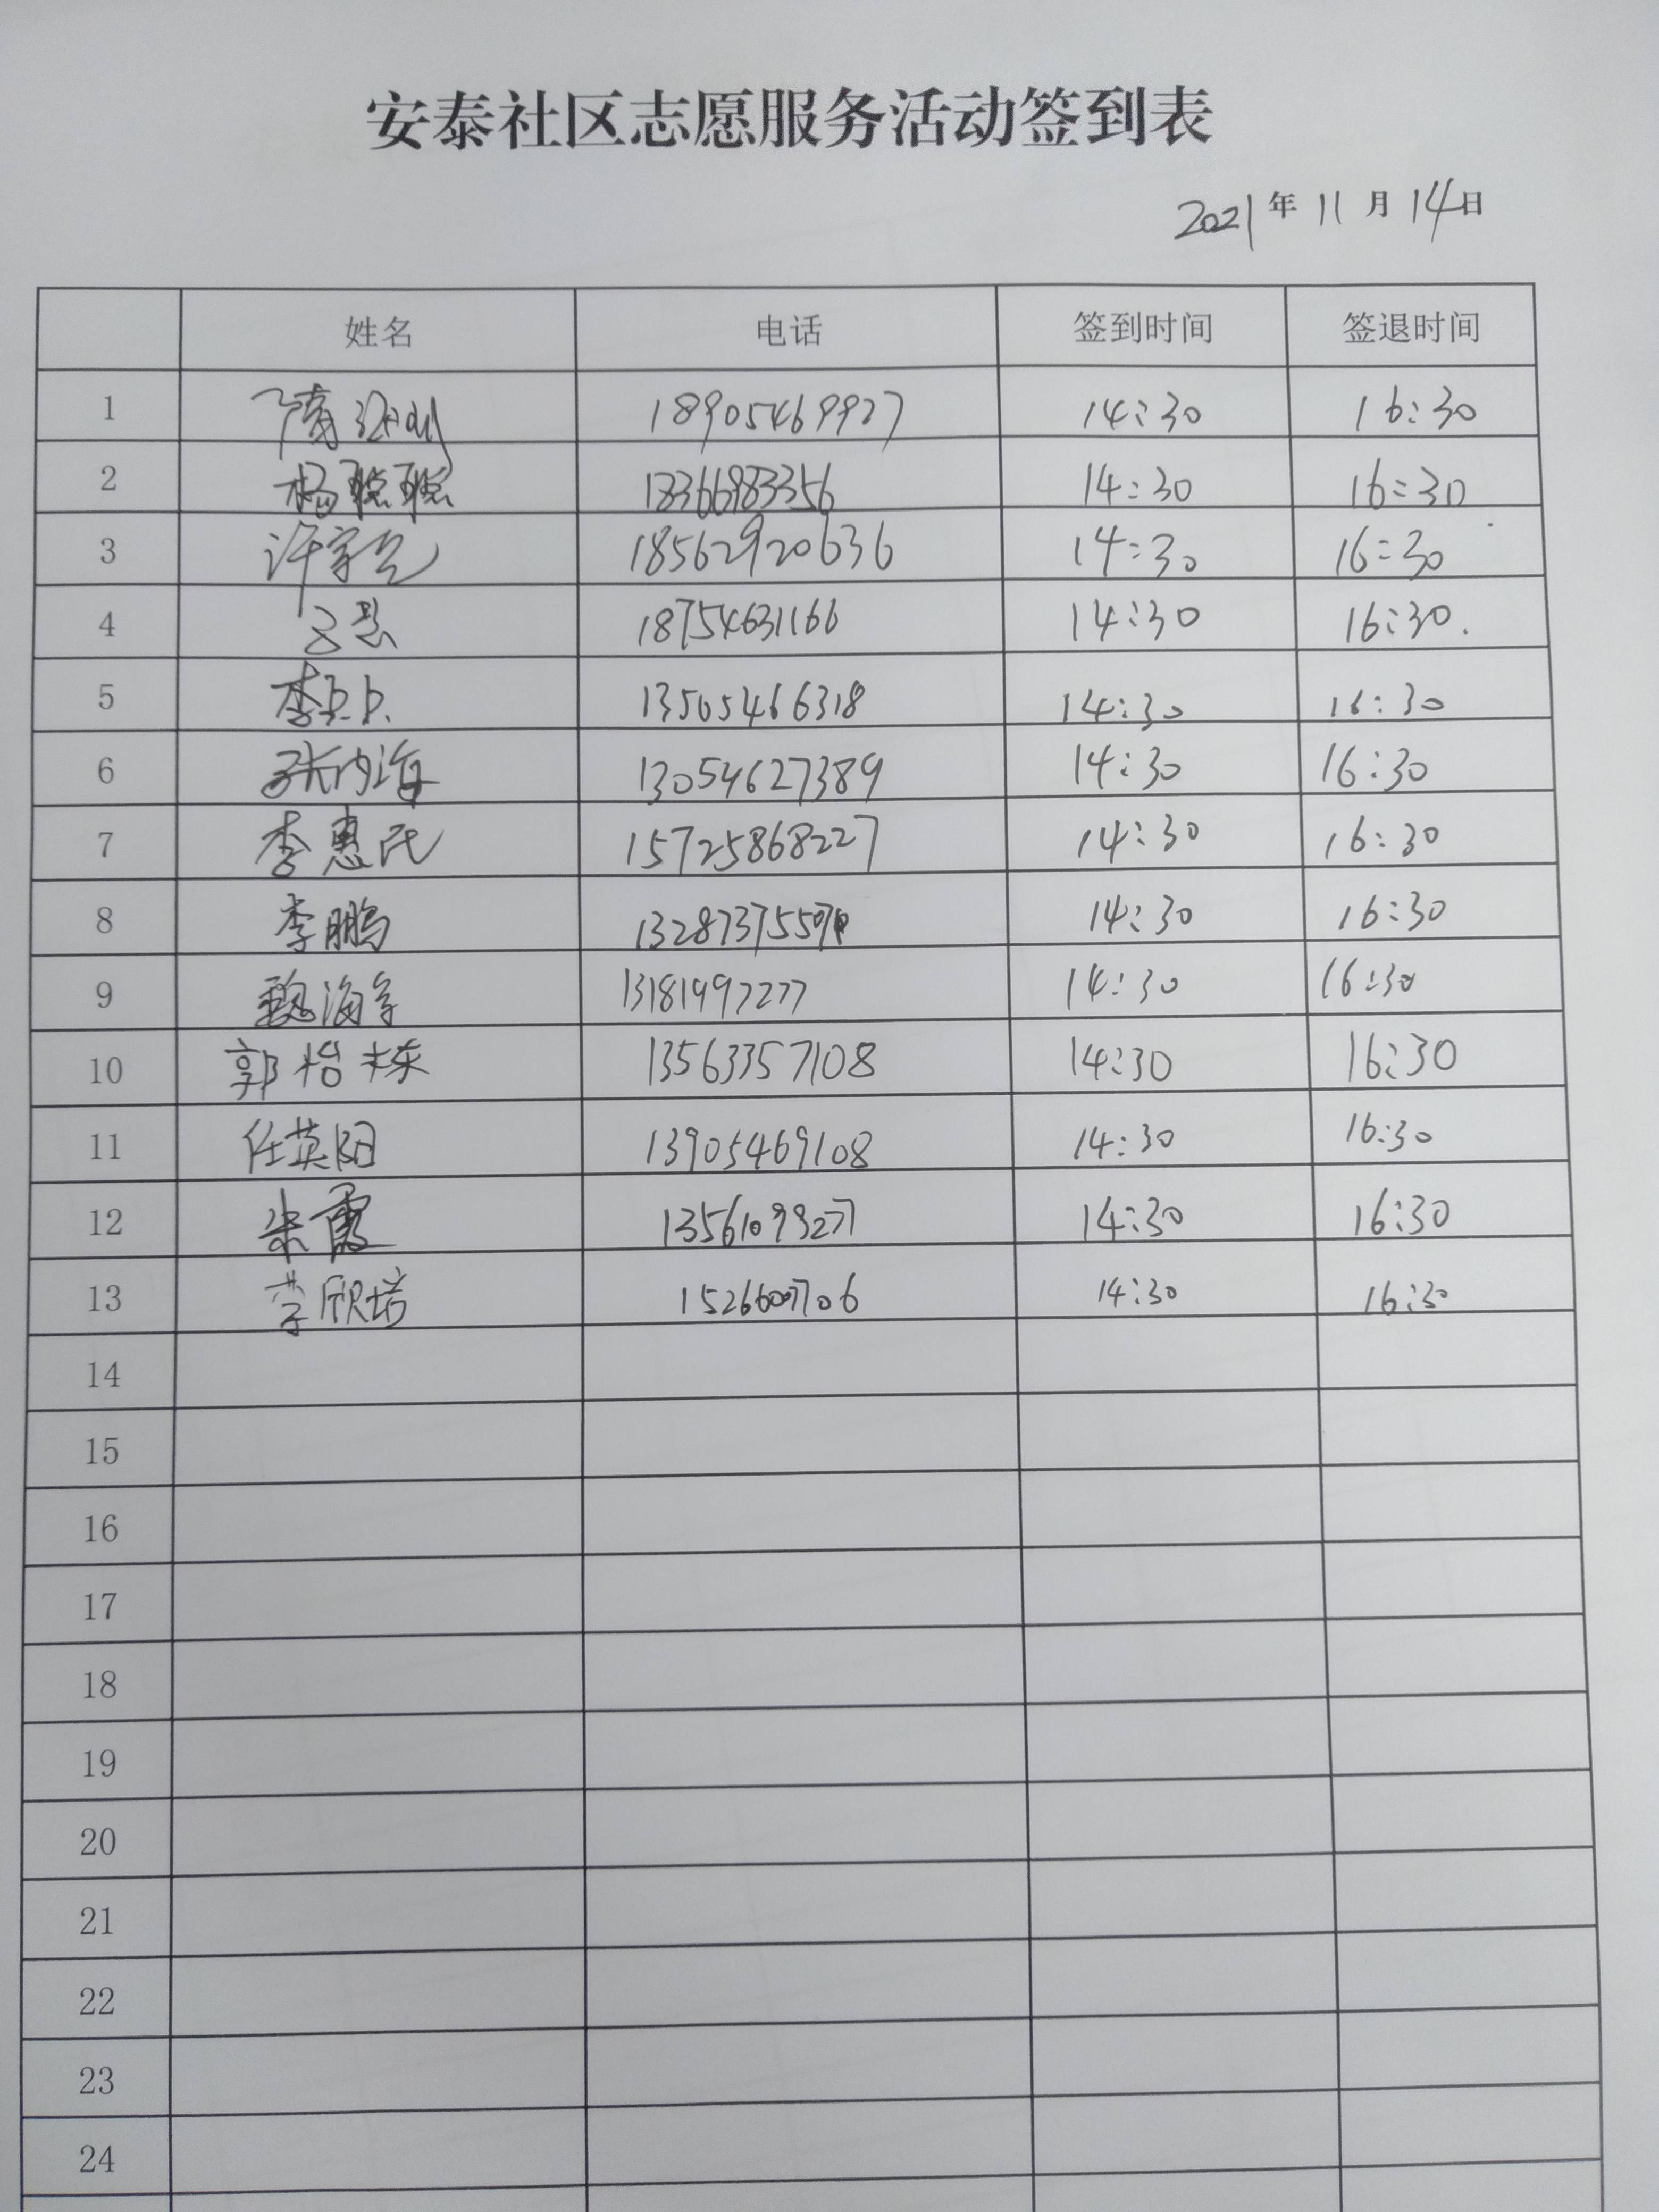 安泰社区志愿服务活动签到表
2021年11月14日
姓名 电话 签到时间 签退时间
1 18905469927 14:30 16:30
2 杨聪聪 18366983356 14:30 16:30
3 18562920636 14:30 16:30
4 18754631166 14:30 16:30.
5 李 13505466318 14:30 16:30
6 张 海 13054627389 14:30 16:30
7 李惠民 15725868227 14:30 16:30
8 李鹏 14:30 16:30
9 魏海 13181997277 14:30 16:30
10 郭怡栋 13563357108 14:30 16:30
11 任英阳 13905469108 14:30 16:30
12 朱霞 14:30 16:30
13 李欣培 14:30 16:30
14
15
16
17
18
19
20
21
22
23
24